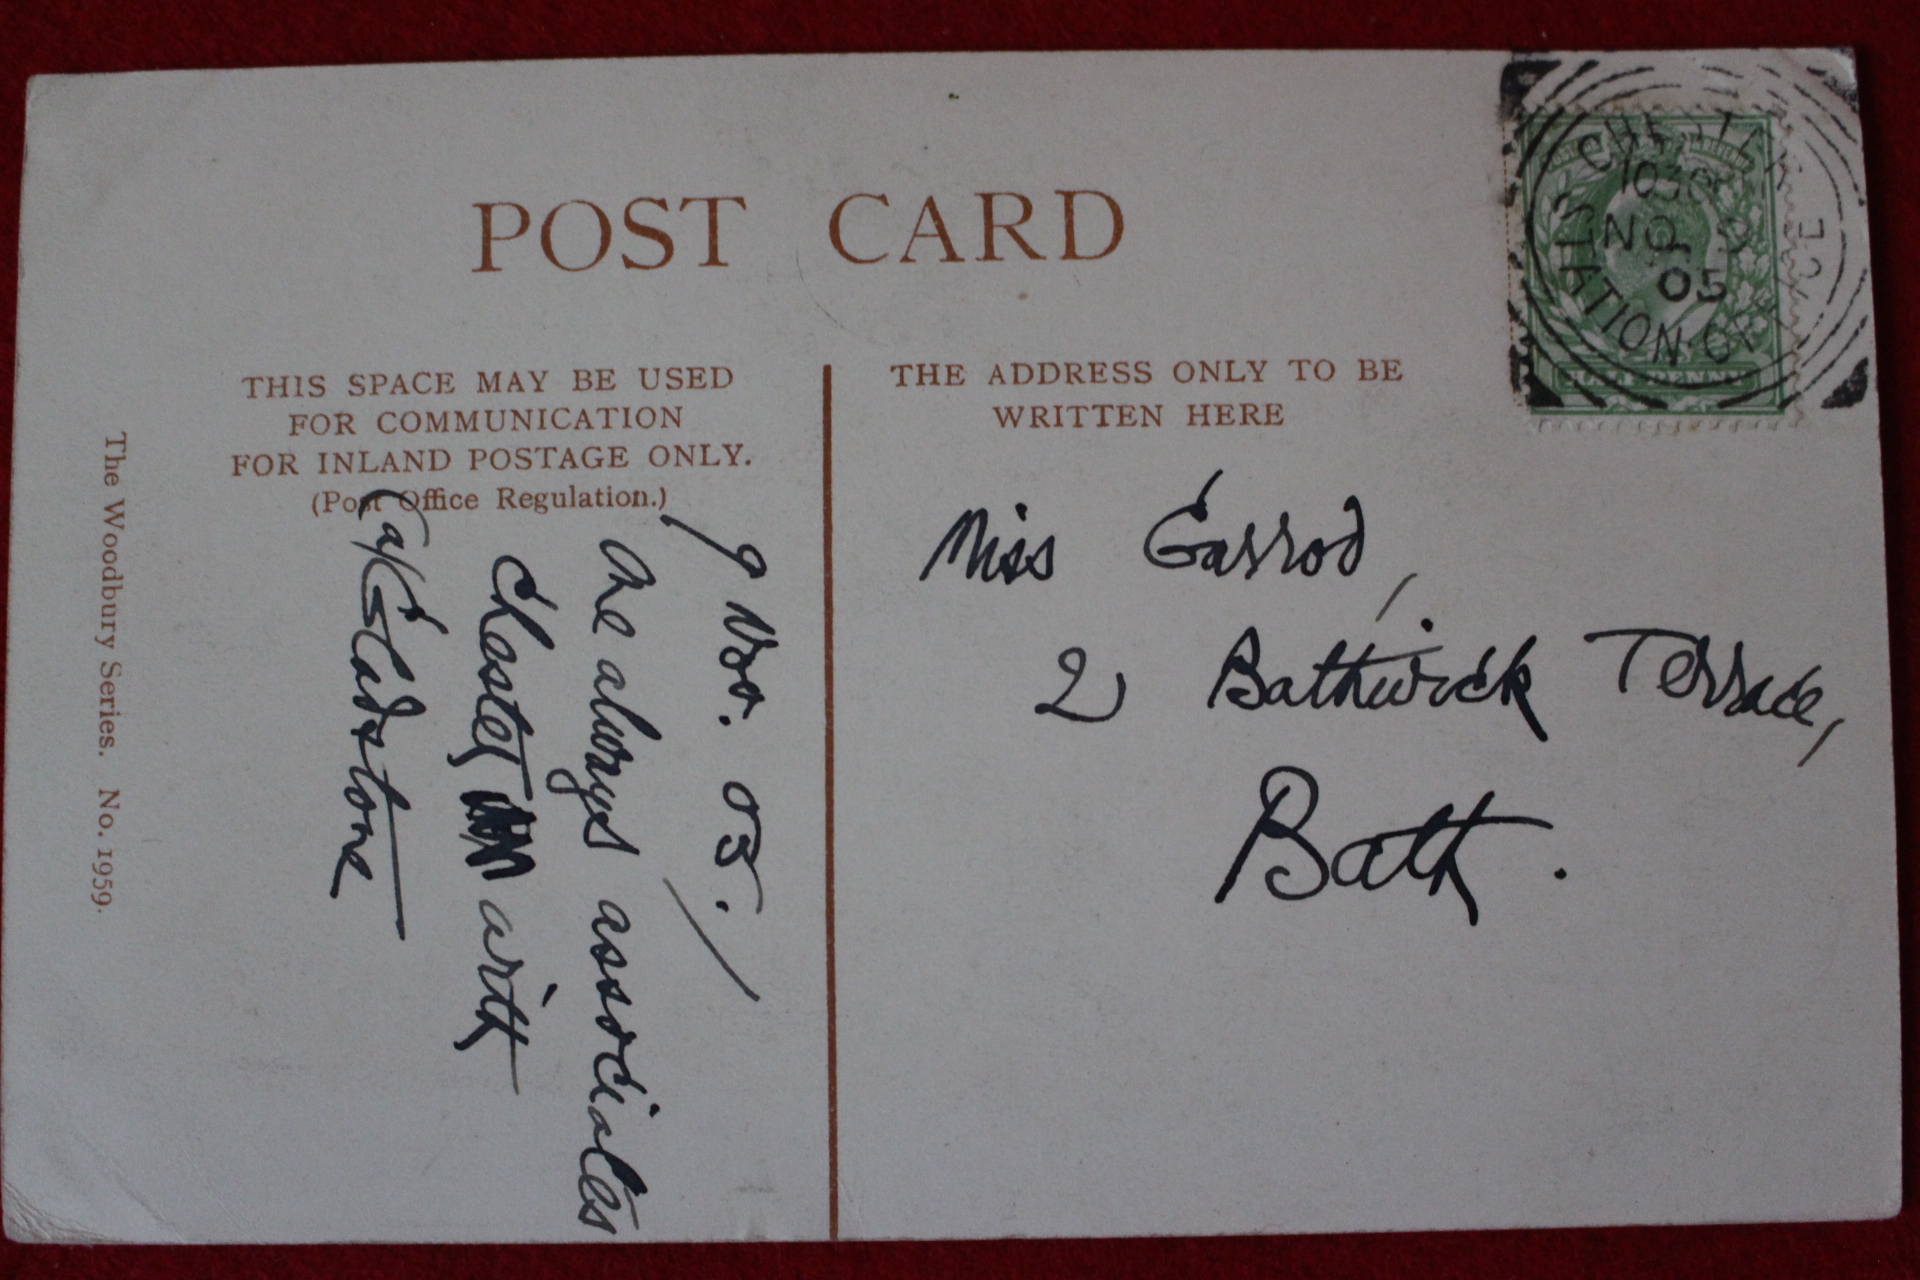 POST CARD
THIS SPACE MAY BE USED
FOR COMMUNICATION
FOR INLAND POSTAGE ONLY.
(Post Office Regulation.)
THE ADDRESS ONLY TO BE
WRITTEN HERE
The Woodbury Series. No. 1959.
9 Nov. 05.
One always associates
Chester with
Gladstone
Miss Garrod,
2 Bathwick Terrace,
Bath.
CHESTER
STATION OFFICE
1030
NO 9
05
HALF PENNY